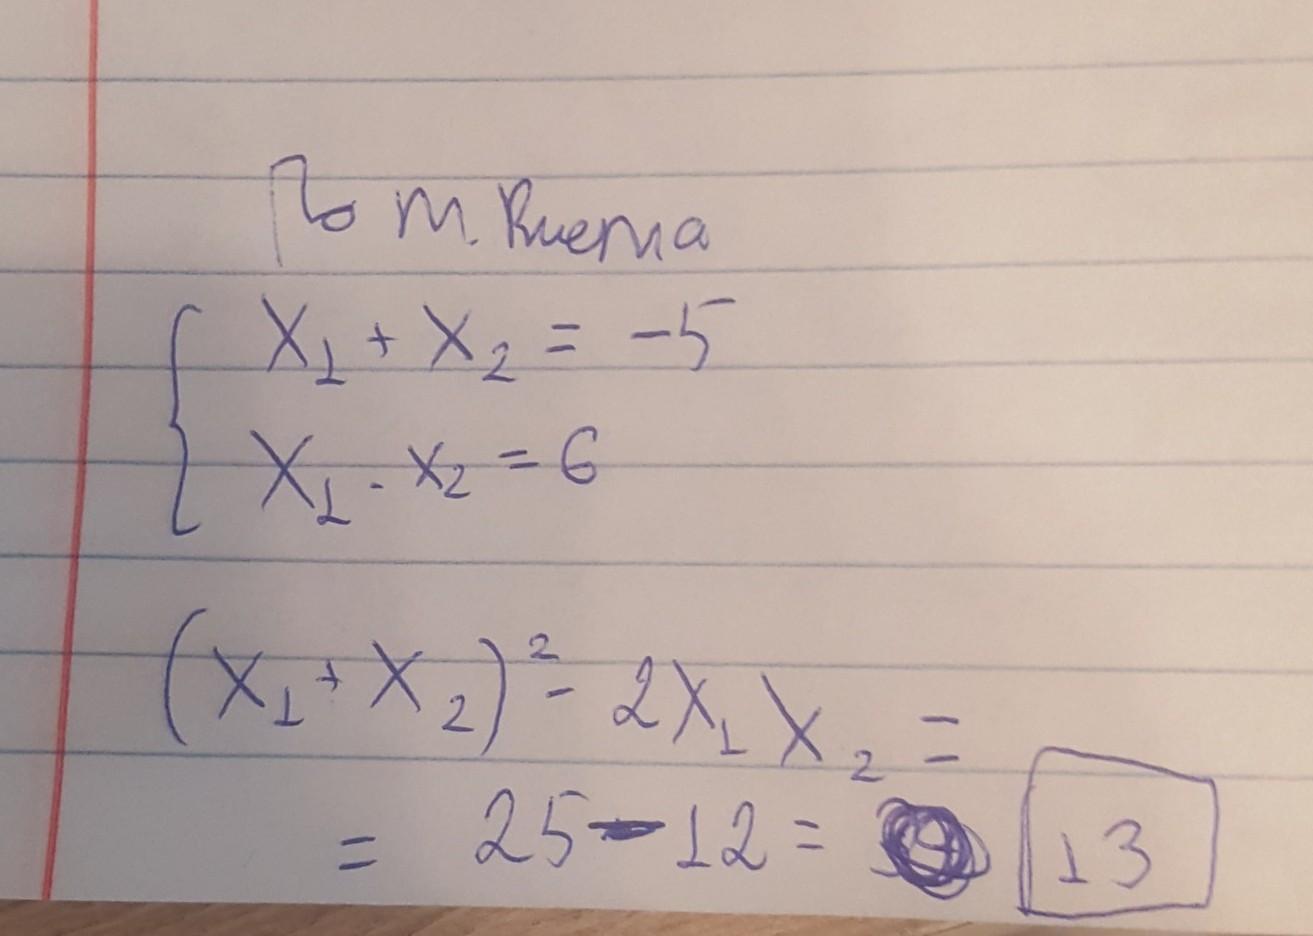 По т. Виета
x₁ + x₂ = -5
x₁ · x₂ = 6
(x₁ + x₂)² - 2x₁x₂ =
= 25 - 12 = 13